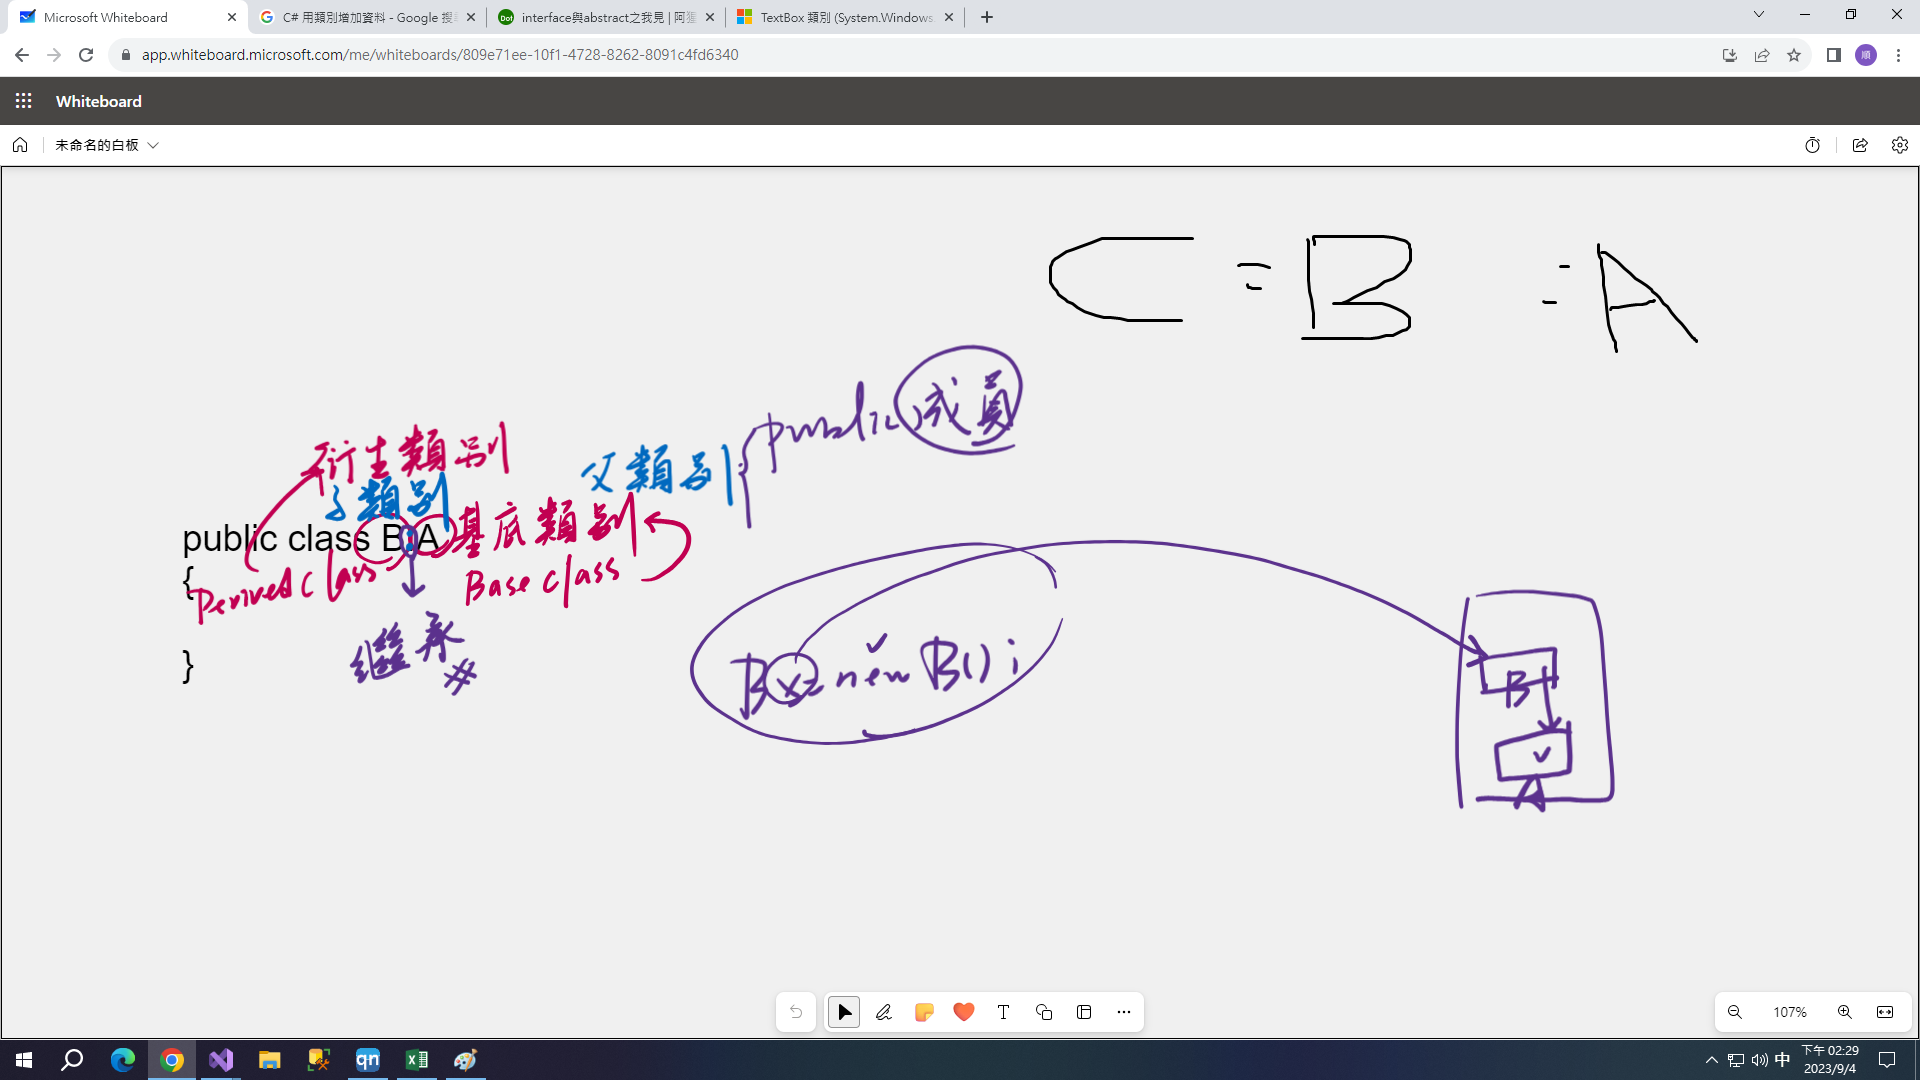 Microsoft Whiteboard
C# 用類別增加資料 - Google 搜
interface與abstract之我見 | 阿猩
TextBox 類別 (System.Windows.
app.whiteboard.microsoft.com/me/whiteboards/809e71ee-10f1-4728-8262-8091c4fd6340
順
Whiteboard
未命名的白板
C = B = A
public 成員
衍生類別
父類別
子類別
public class B:A
基底類別
{
Derived class
Base class
繼承
#
}
B x= new B();
B
A
107%
qn
中
下午 02:29
2023/9/4